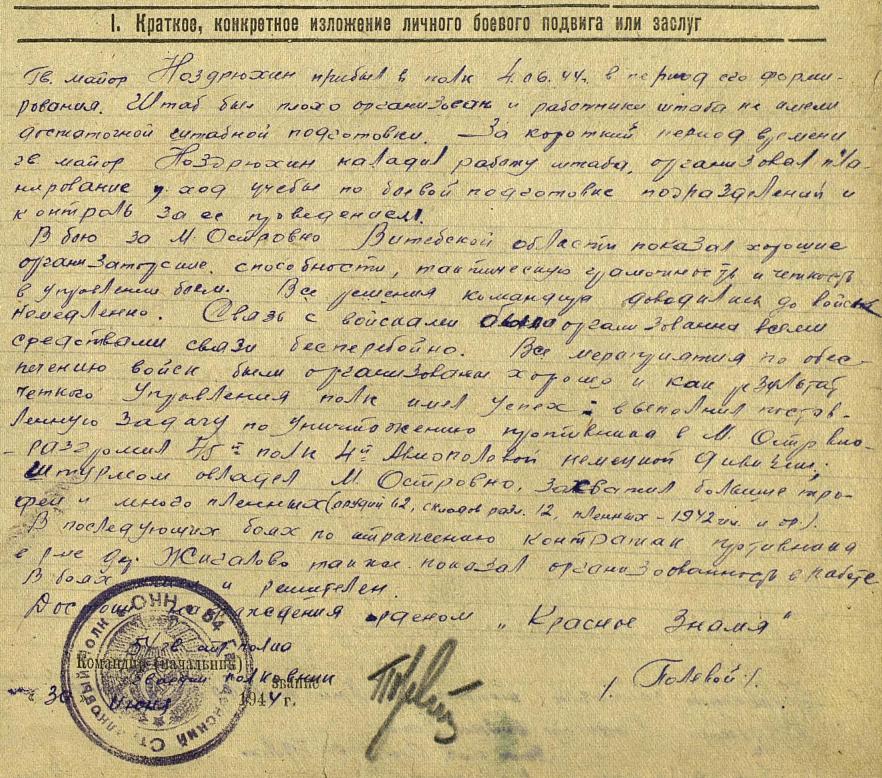 I. Краткое, конкретное изложение личного боевого подвига или заслуг
Гв. майор Ноздрюхин прибыл в полк 4.06.44г. в период его форми-
рования. Штаб был плохо организован и работники штаба не имели
достаточной штабной подготовки. За короткий период времени
гв майор Ноздрюхин наладил работу штаба, организовал пла-
нирование и ход учебы по боевой подготовке подразделений и
контроль за ее проведением.
В бою за М. Островно Витебской области показал хорошие
организаторские способности, тактическую грамотность и четкость
в управлении боем. Все решения командира доводились до войск
немедленно. Связь с войсками была организованна всеми
средствами связи бесперебойно. Все мероприятия по обес-
печению войск были организованы хорошо и как результат
четкого управления полк имел успех: выполнил постав-
ленную задачу по уничтожению противника в М. Островно
- разгромил 45й полк 4й Авиополевой немецкой дивизии,
штурмом овладел М. Островно, захватил большие тро-
феи и много пленных (орудий 62, складов разл. 12, пленных - 1942 чл. и др.).
В последующих боях по отражению контратак противника
в р-не др. Жигалово также показал организованность в работе
В боях и решителен.
Достоин награждения орденом „Красное Знамя"
Командир (начальник)
Гвардии полковник
звание
/. Полевой /.
30 Июня 1944 г.
54 Гвардейский Стрелковый полк